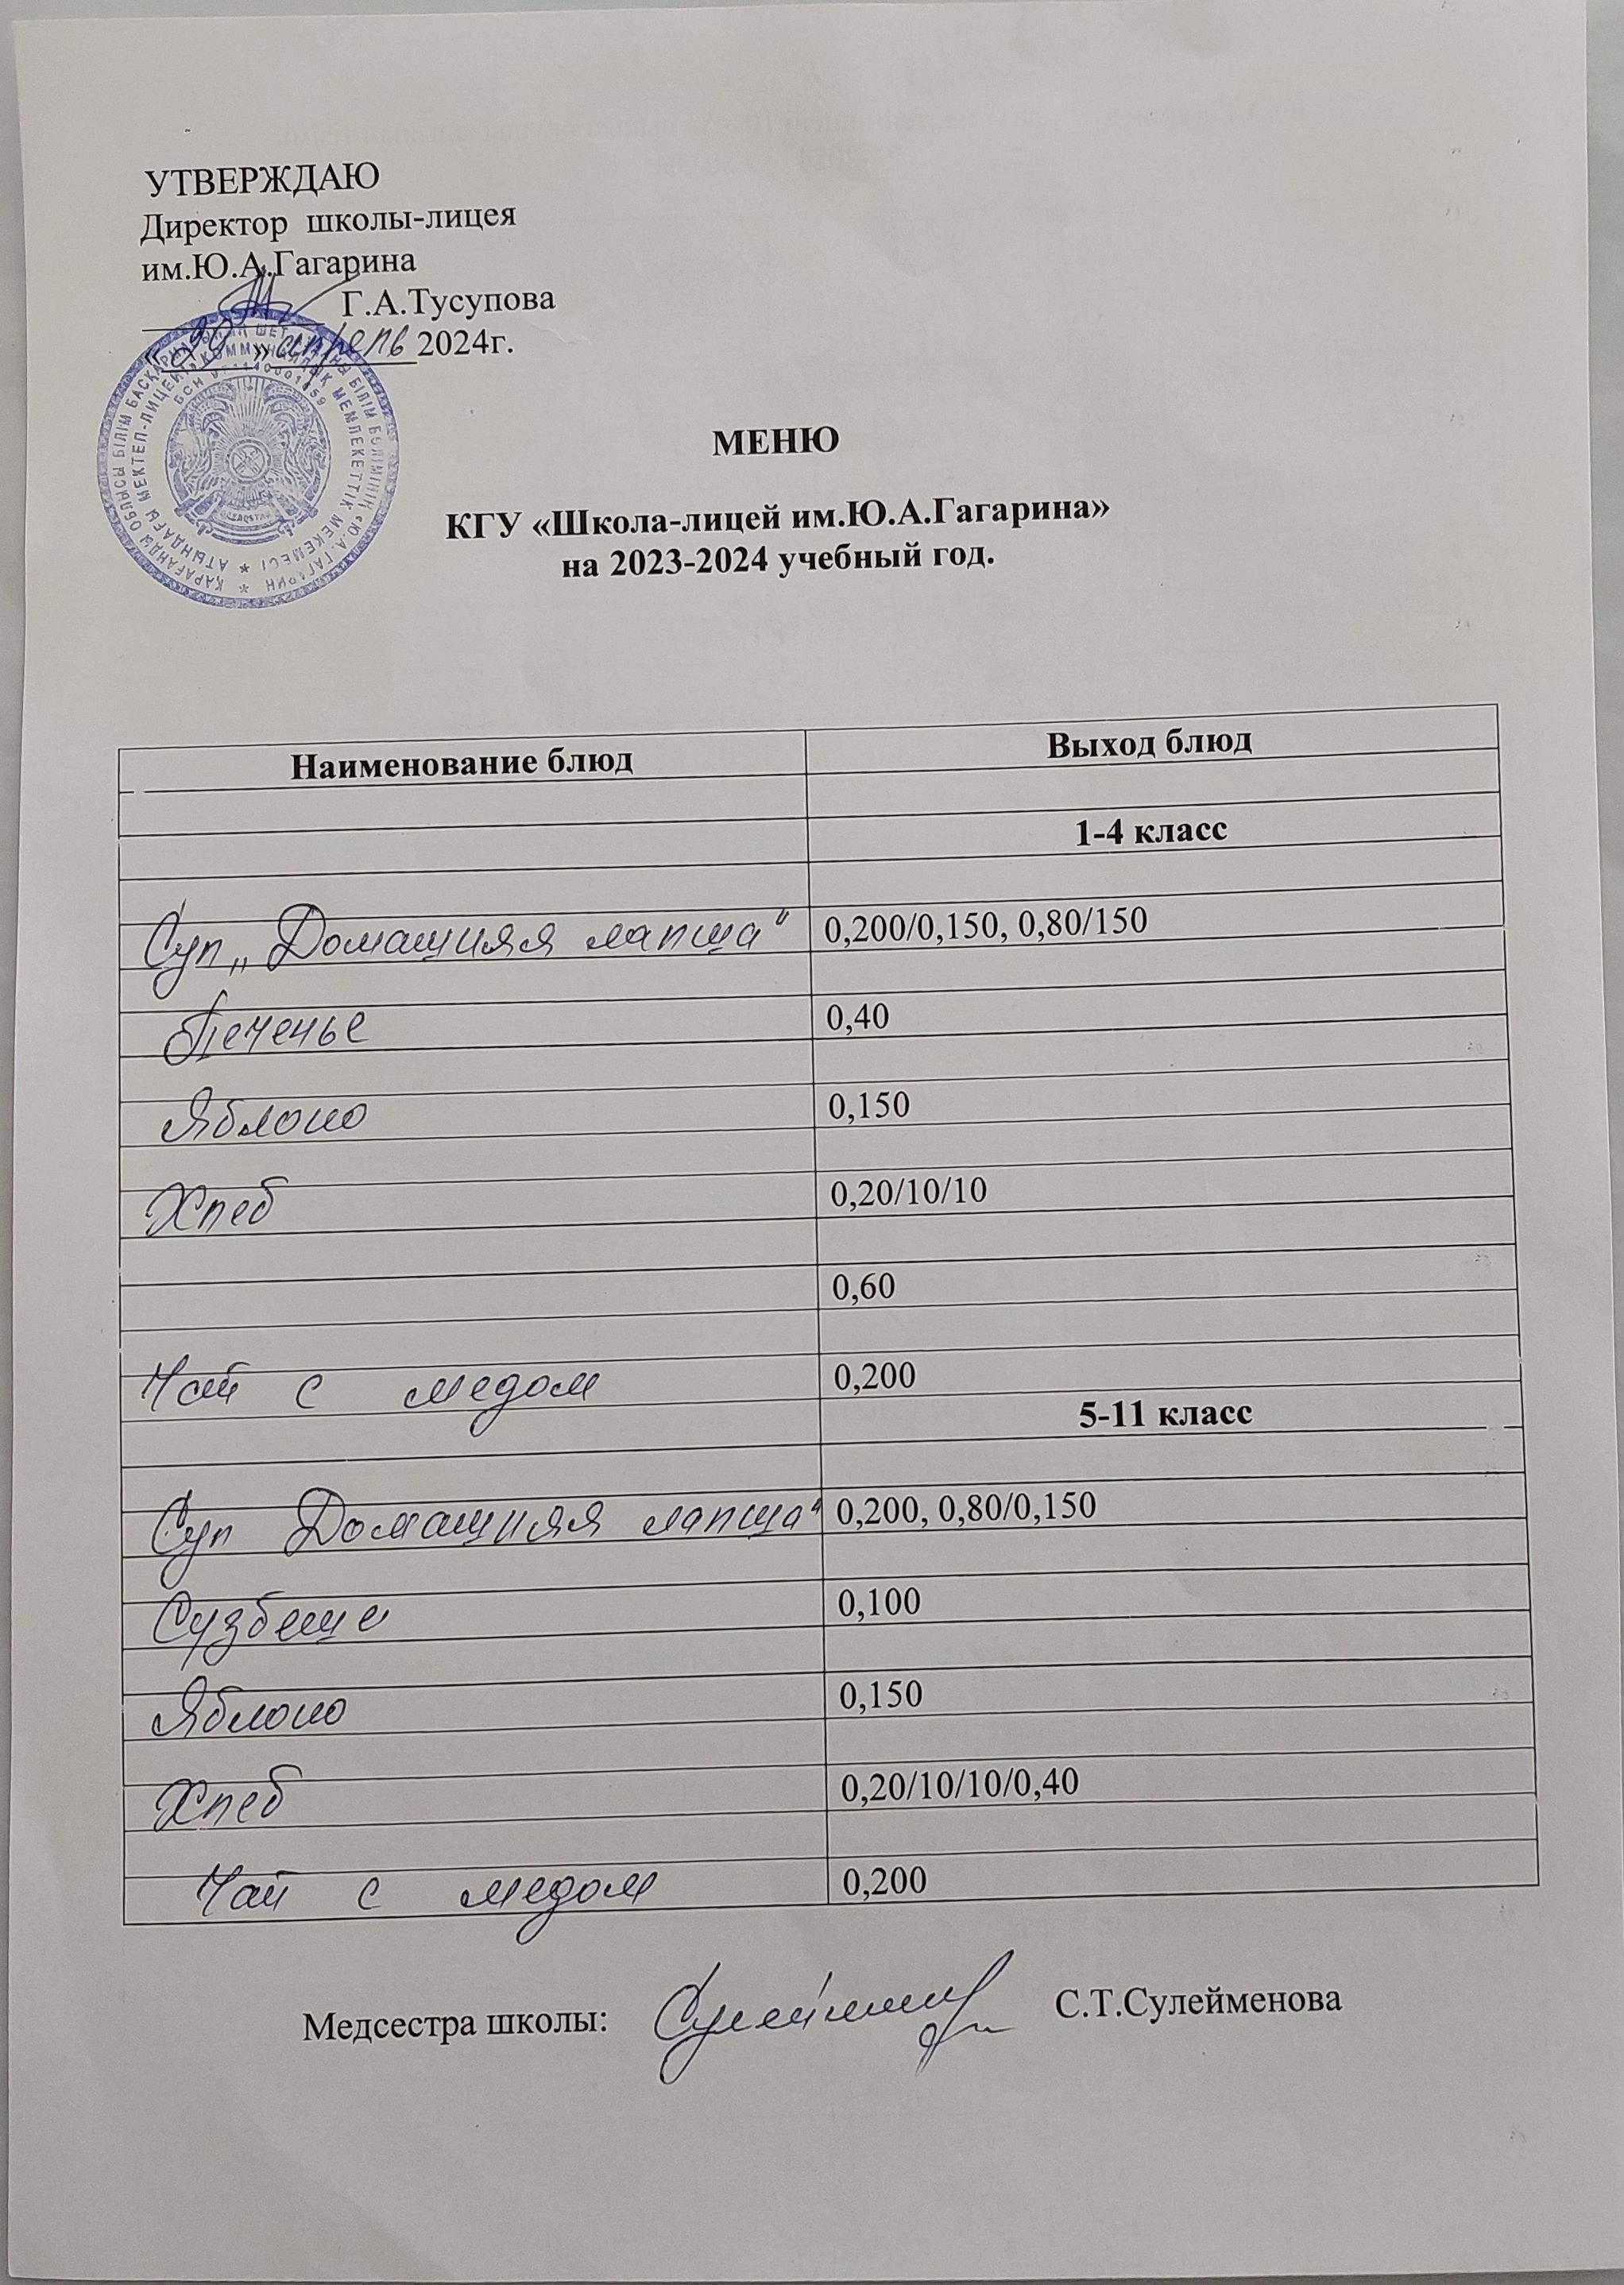 УТВЕРЖДАЮ
Директор школы-лицея
им.Ю.А.Гагарина
Г.А.Тусупова
« » апрель 2024г.
ҚАРАҒАНДЫ ОБЛЫСЫ БІЛІМ БАСҚАРМАСЫНЫҢ ШЕТ БІЛІМ БӨЛІМІНІҢ «Ю.А.ГАГАРИН
АТЫНДАҒЫ МЕКТЕП-ЛИЦЕЙІ» КОММУНАЛДЫҚ МЕМЛЕКЕТТІК МЕКЕМЕСІ
БСН
МЕНЮ
КГУ «Школа-лицей им.Ю.А.Гагарина»
на 2023-2024 учебный год.
Наименование блюд Выход блюд
1-4 класс
Суп „Домашняя лапша" 0,200/0,150, 0,80/150
Печенье 0,40
Яблоко 0,150
Хлеб 0,20/10/10
0,60
Чай с медом 0,200
5-11 класс
Суп Домашняя лапша" 0,200, 0,80/0,150
0,100
Яблоко 0,150
Хлеб 0,20/10/10/0,40
Чай с медом 0,200
Медсестра школы: С.Т.Сулейменова